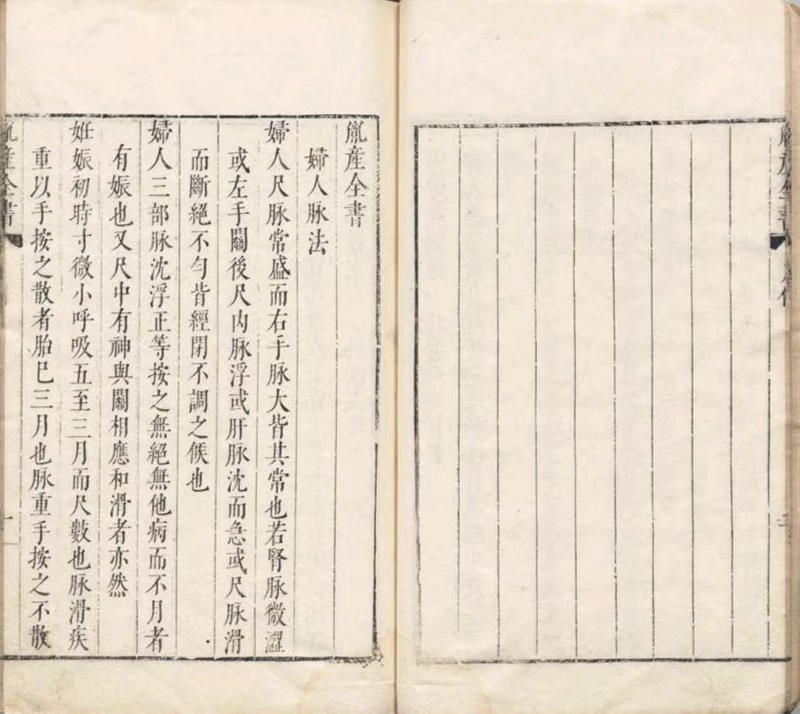 胤產全書
胤產全書
婦人脉法
婦人尺脉常盛而右手脉大皆其常也若腎脉微澀
或左手關後尺内脉浮或肝脉沈而急或尺脉滑
而斷絕不勻皆經閉不調之候也
婦人三部脉沈浮正等按之無絕無他病而不月者
有娠也又尺中有神與關相應和滑者亦然
妊娠初時寸微小呼吸五至三月而尺數也脉滑疾
重以手按之散者胎已三月也脉重手按之不散
胤產全書